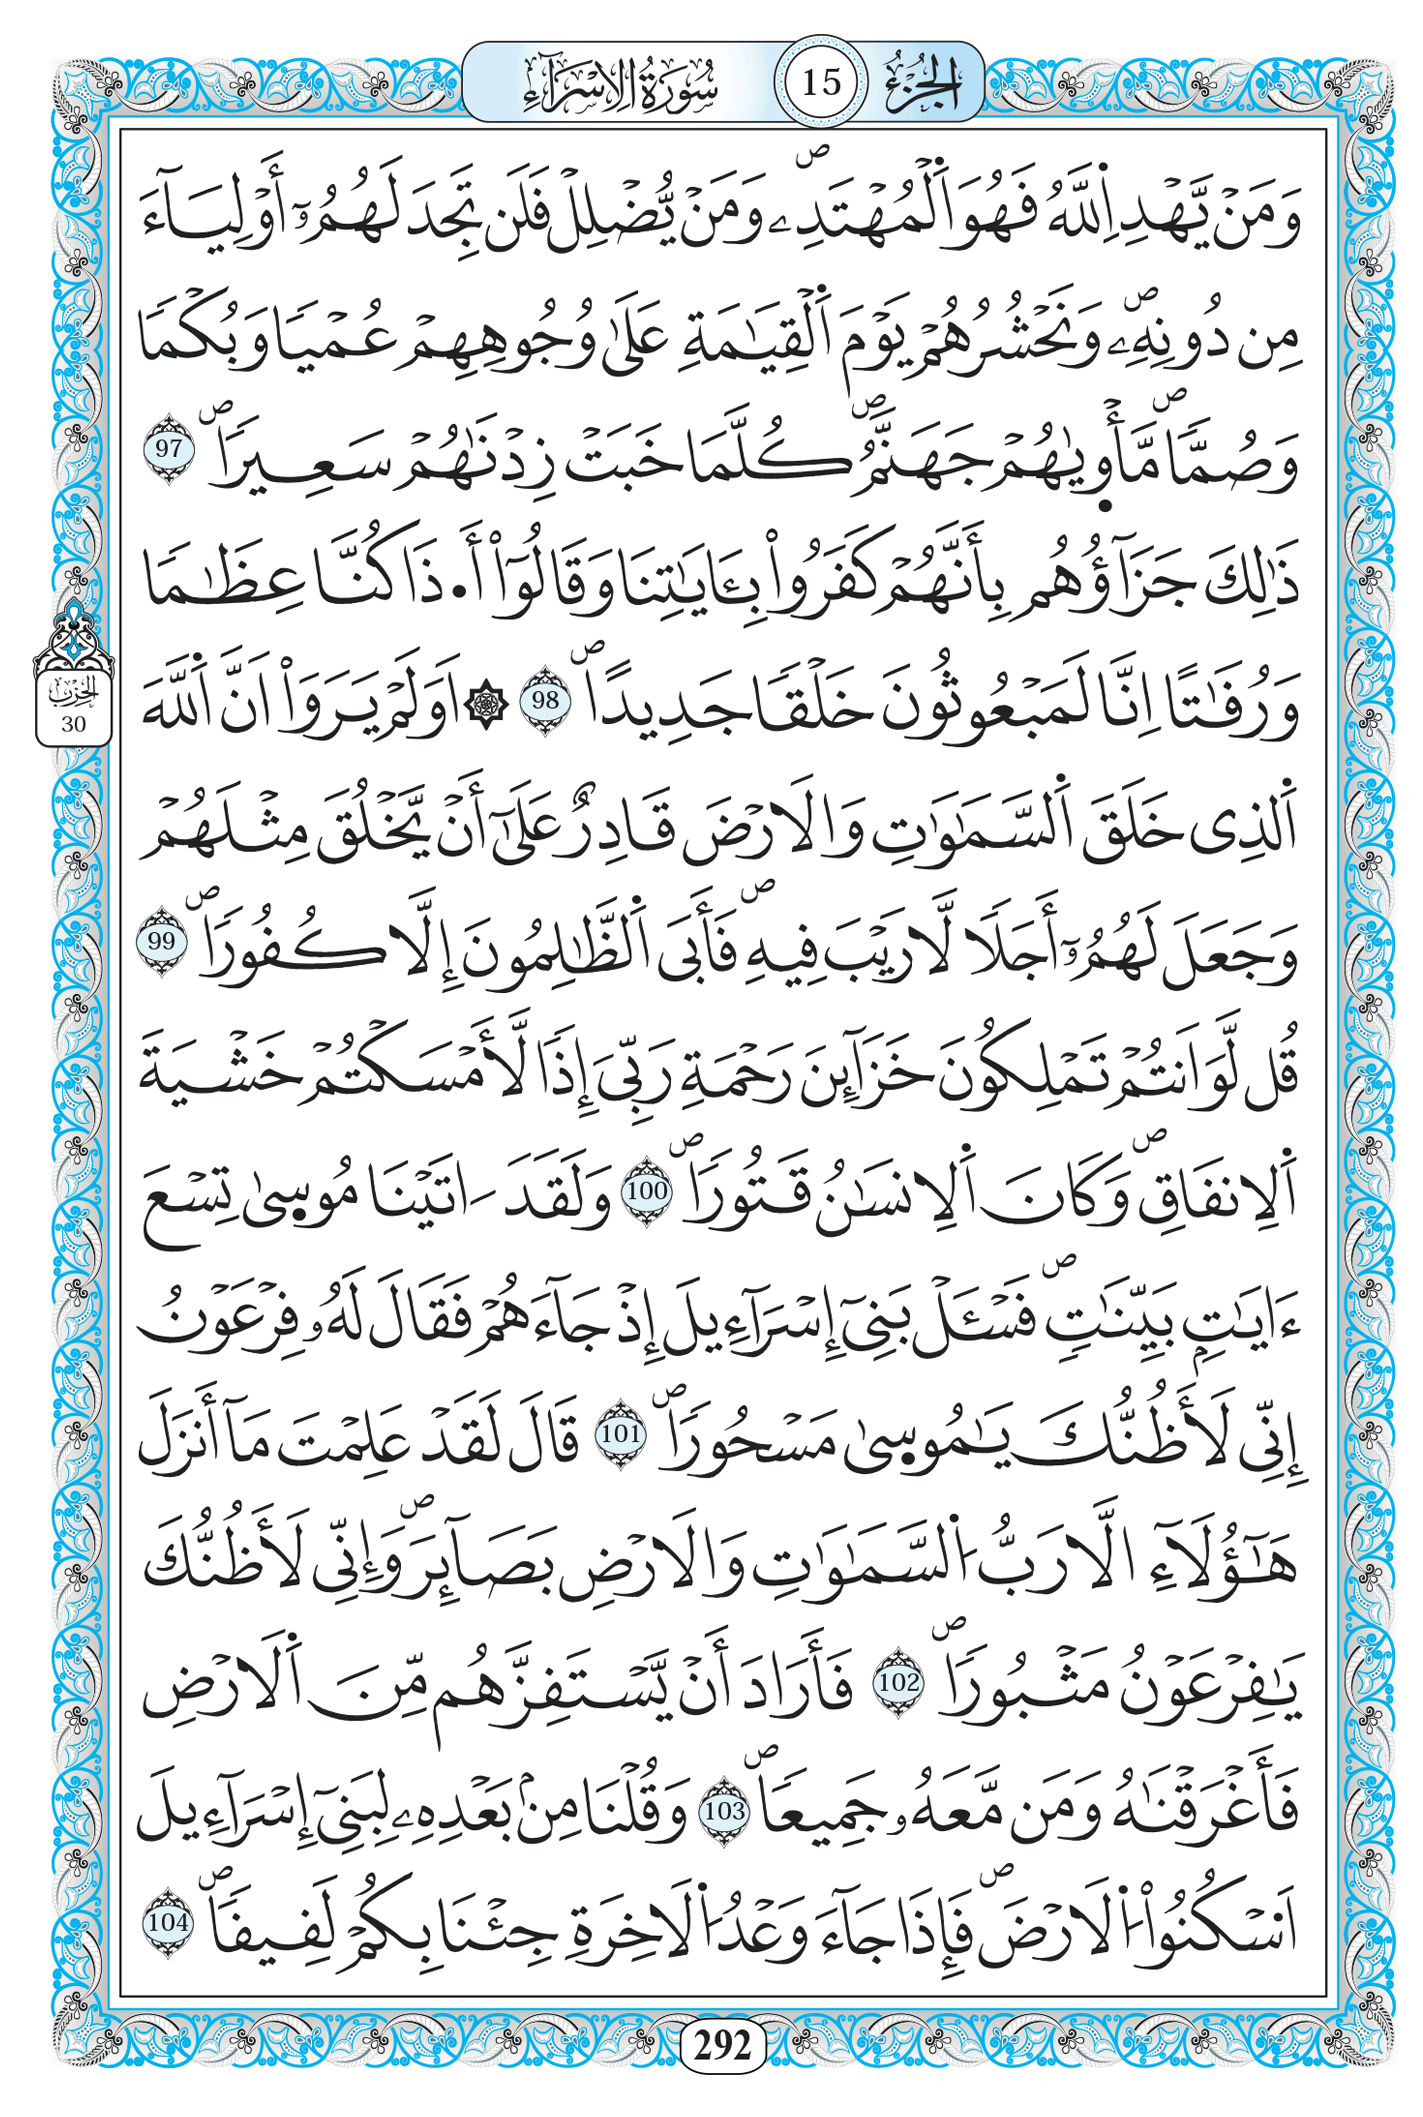 الجزء 15 سورة الإسراء
وَمَنْ يَّهْدِ اِ۬للَّهُ فَهُوَ اَ۬لْمُهْتَدِۦ ص وَمَنْ يُّضْلِلْ فَلَن تَجِدَ لَهُمُۥٓ أَوْلِيَآءَ
مِن دُونِهِۦ ص وَنَحْشُرُهُمْ يَوْمَ اَ۬لْقِيَٰمَةِ عَلَىٰ وُجُوهِهِمْ عُمْياٗ وَبُكْماٗ
وَصُمّاٗ ص مَّأْو۪يٰهُمْ جَهَنَّمُ ص كُلَّمَا خَبَتْ زِدْنَٰهُمْ سَعِيراٗ ص 97
ذَٰلِكَ جَزَآؤُهُم بِأَنَّهُمْ كَفَرُواْ بِـَٔايَٰتِنَا وَقَالُوٓاْ أَ۬ذَا كُنَّا عِظَٰماٗ
وَرُفَٰتاً اِنَّا لَمَبْعُوثُونَ خَلْقاٗ جَدِيداً ص 98 ۞ اَوَلَمْ يَرَوَاْ اَنَّ اَ۬للَّهَ
اَ۬لذِى خَلَقَ اَ۬لسَّمَٰوَٰتِ وَالَارْضَ قَادِرٌ عَلَىٰٓ أَنْ يَّخْلُقَ مِثْلَهُمْ
وَجَعَلَ لَهُمُۥٓ أَجَلاٗ لَّا رَيْبَ فِيهِ ص فَأَبَى اَ۬لظَّٰلِمُونَ إِلَّا كُفُوراٗ ص 99
قُل لَّوَ انتُمْ تَمْلِكُونَ خَزَآئِنَ رَحْمَةِ رَبِّىَ إِذاٗ لَّأَمْسَكْتُمْ خَشْيَةَ
اَ۬لِانفَاقِ ص وَكَانَ اَ۬لِانسَٰنُ قَتُوراٗ ص 100 وَلَقَدَ ـ اتَيْنَا مُوس۪ىٰ تِسْعَ
ءَايَٰتِۢ بَيِّنَٰتٖ ص فَسْـَٔلْ بَنِىٓ إِسْرَآءِيلَ إِذْ جَآءَهُمْ فَقَالَ لَهُۥ فِرْعَوْنُ
إِنِّى لَأَظُنُّكَ يَٰمُوس۪ىٰ مَسْحُوراٗ ص 101 قَالَ لَقَدْ عَلِمْتَ مَآ أَنزَلَ
هَٰٓؤُلَآءِ الَّا رَبُّ اُ۬لسَّمَٰوَٰتِ وَالَارْضِ بَصَآئِرَ ص وَإِنِّى لَأَظُنُّكَ
يَٰفِرْعَوْنُ مَثْبُوراٗ ص 102 فَأَرَادَ أَنْ يَّسْتَفِزَّهُم مِّنَ اَ۬لَارْضِ
فَأَغْرَقْنَٰهُ وَمَن مَّعَهُۥ جَمِيعاٗ ص 103 وَقُلْنَا مِنۢ بَعْدِهِۦ لِبَنِىٓ إِسْرَآءِيلَ
اَسْكُنُواْ اُ۬لَارْضَ ص فَإِذَا جَآءَ وَعْدُ اُ۬لَاخِرَةِ جِئْنَا بِكُمْ لَفِيفاٗ ص 104
الحزب
30
292